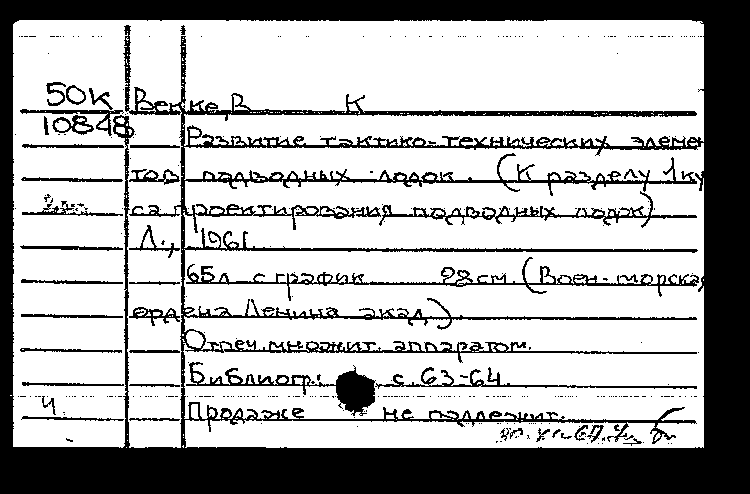 50к Векке, В К
10848
Развитие тактико-технических элемен
тов подводных лодок. (К разделу 1 ку
са проектирования подводных лодок)
Л., 1961.
65л с график 28см. (Воен-морска
ордена Ленина акад).
Отпеч. множит. аппаратом.
Библиогр: с. 63-64.
Ч
Продаже не подлежит.